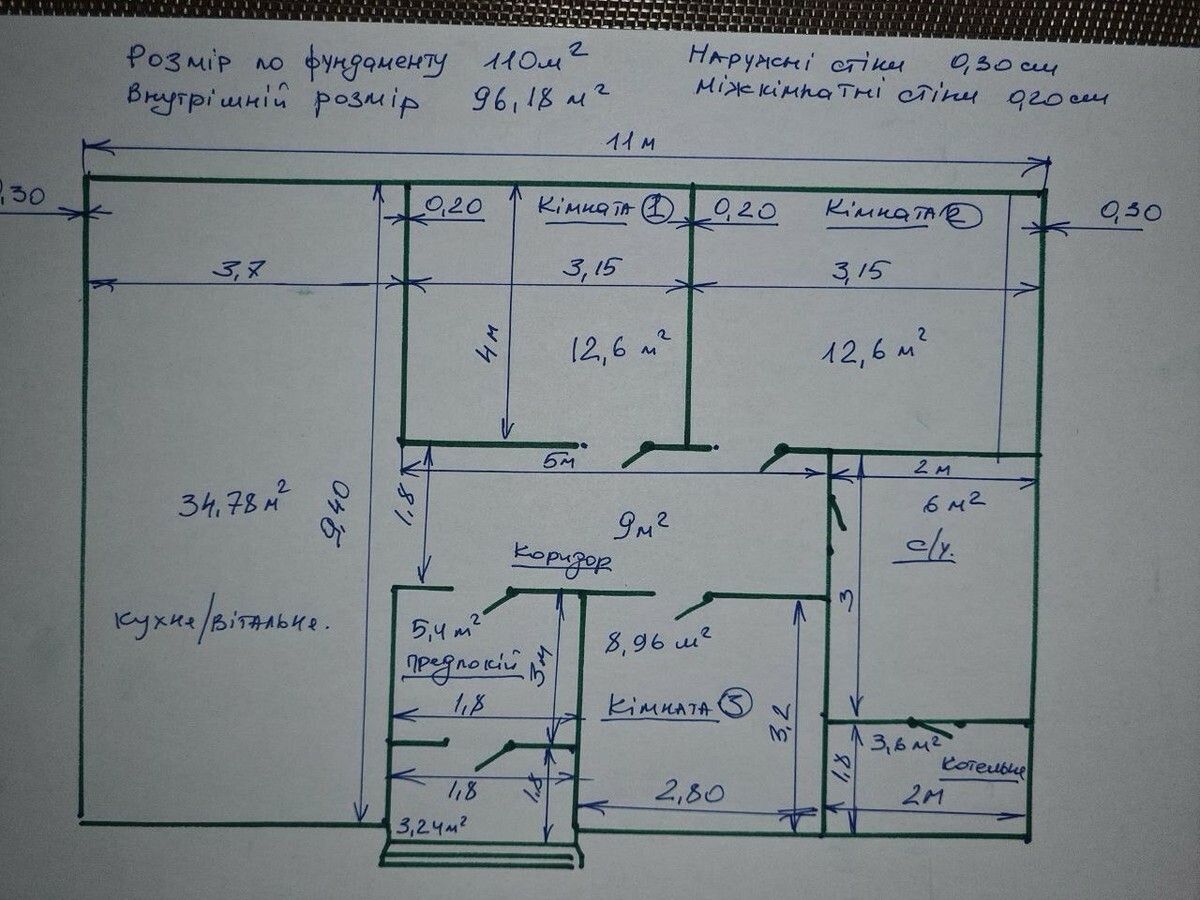 Розмір по фундаменту 110м²
Наружні стіни 0,30см
Внутрішній розмір 96,18 м²
Міжкімнатні стіни 0,20см
11 м
0,30
0,20
Кімната 1
0,20
Кімната 2
0,30
3,7
3,15
3,15
4м
12,6 м²
12,6 м²
5м
2 м
34,78м²
9,40
1,8
9м²
6 м²
Коридор
с/у.
3
Кухня/вітальня.
5,4м²
предпокій
3м
8,96 м²
1,8
Кімната 3
3,2
3,6м²
Котельня
1,8
1,8
1,8
2,80
2м
3,24м²